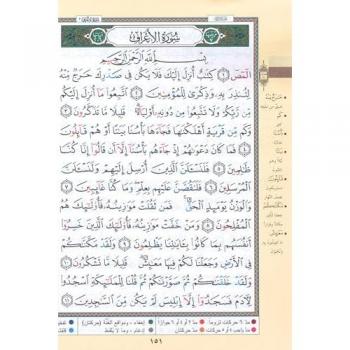 سُورَةُ الأَعْرَافِ
بِسْمِ اللَّهِ الرَّحْمَنِ الرَّحِيمِ
الٓمٓصٓ ١ كِتَٰبٌ أُنزِلَ إِلَيْكَ فَلَا يَكُن فِى صَدْرِكَ حَرَجٌ مِّنْهُ
لِتُنذِرَ بِهِۦ وَذِكْرَىٰ لِلْمُؤْمِنِينَ ٢ ٱتَّبِعُوا۟ مَآ أُنزِلَ إِلَيْكُم
مِّن رَّبِّكُمْ وَلَا تَتَّبِعُوا۟ مِن دُونِهِۦٓ أَوْلِيَآءَ ۗ قَلِيلًا مَّا تَذَكَّرُونَ ٣
وَكَم مِّن قَرْيَةٍ أَهْلَكْنَٰهَا فَجَآءَهَا بَأْسُنَا بَيَٰتًا أَوْ هُمْ قَآئِلُونَ
٤ فَمَا كَانَ دَعْوَىٰهُمْ إِذْ جَآءَهُم بَأْسُنَآ إِلَّآ أَن قَالُوٓا۟ إِنَّا كُنَّا
ظَٰلِمِينَ ٥ فَلَنَسْـَٔلَنَّ ٱلَّذِينَ أُرْسِلَ إِلَيْهِمْ وَلَنَسْـَٔلَنَّ
ٱلْمُرْسَلِينَ ٦ فَلَنَقُصَّنَّ عَلَيْهِم بِعِلْمٍ ۖ وَمَا كُنَّا غَآئِبِينَ ٧
وَٱلْوَزْنُ يَوْمَئِذٍ ٱلْحَقُّ ۚ فَمَن ثَقُلَتْ مَوَٰزِينُهُۥ فَأُو۟لَٰٓئِكَ هُمُ
ٱلْمُفْلِحُونَ ٨ وَمَنْ خَفَّتْ مَوَٰزِينُهُۥ فَأُو۟لَٰٓئِكَ ٱلَّذِينَ خَسِرُوٓا۟
أَنفُسَهُم بِمَا كَانُوا۟ بِـَٔايَٰتِنَا يَظْلِمُونَ ٩ وَلَقَدْ مَكَّنَّٰكُمْ
فِى ٱلْأَرْضِ وَجَعَلْنَا لَكُمْ فِيهَا مَعَٰيِشَ ۗ قَلِيلًا مَّا تَشْكُرُونَ ١٠
وَلَقَدْ خَلَقْنَٰكُمْ ثُمَّ صَوَّرْنَٰكُمْ ثُمَّ قُلْنَا لِلْمَلَٰٓئِكَةِ ٱسْجُدُوا۟
لِـَٔادَمَ فَسَجَدُوٓا۟ إِلَّآ إِبْلِيسَ لَمْ يَكُن مِّنَ ٱلسَّٰجِدِينَ ١١
١٥١